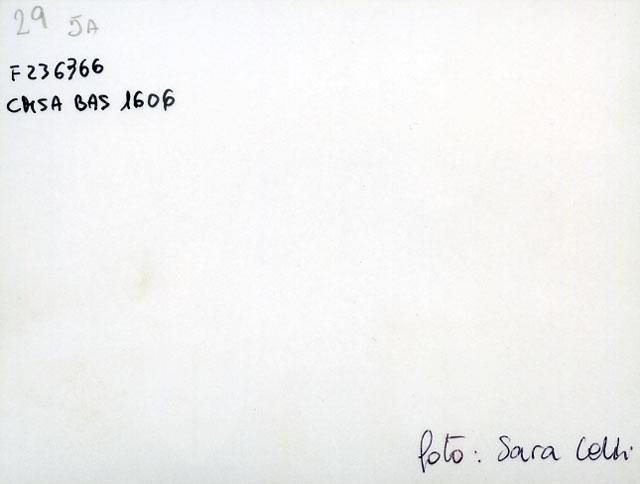 29 5A
F236366
CASA BAS 1606
foto: Sara